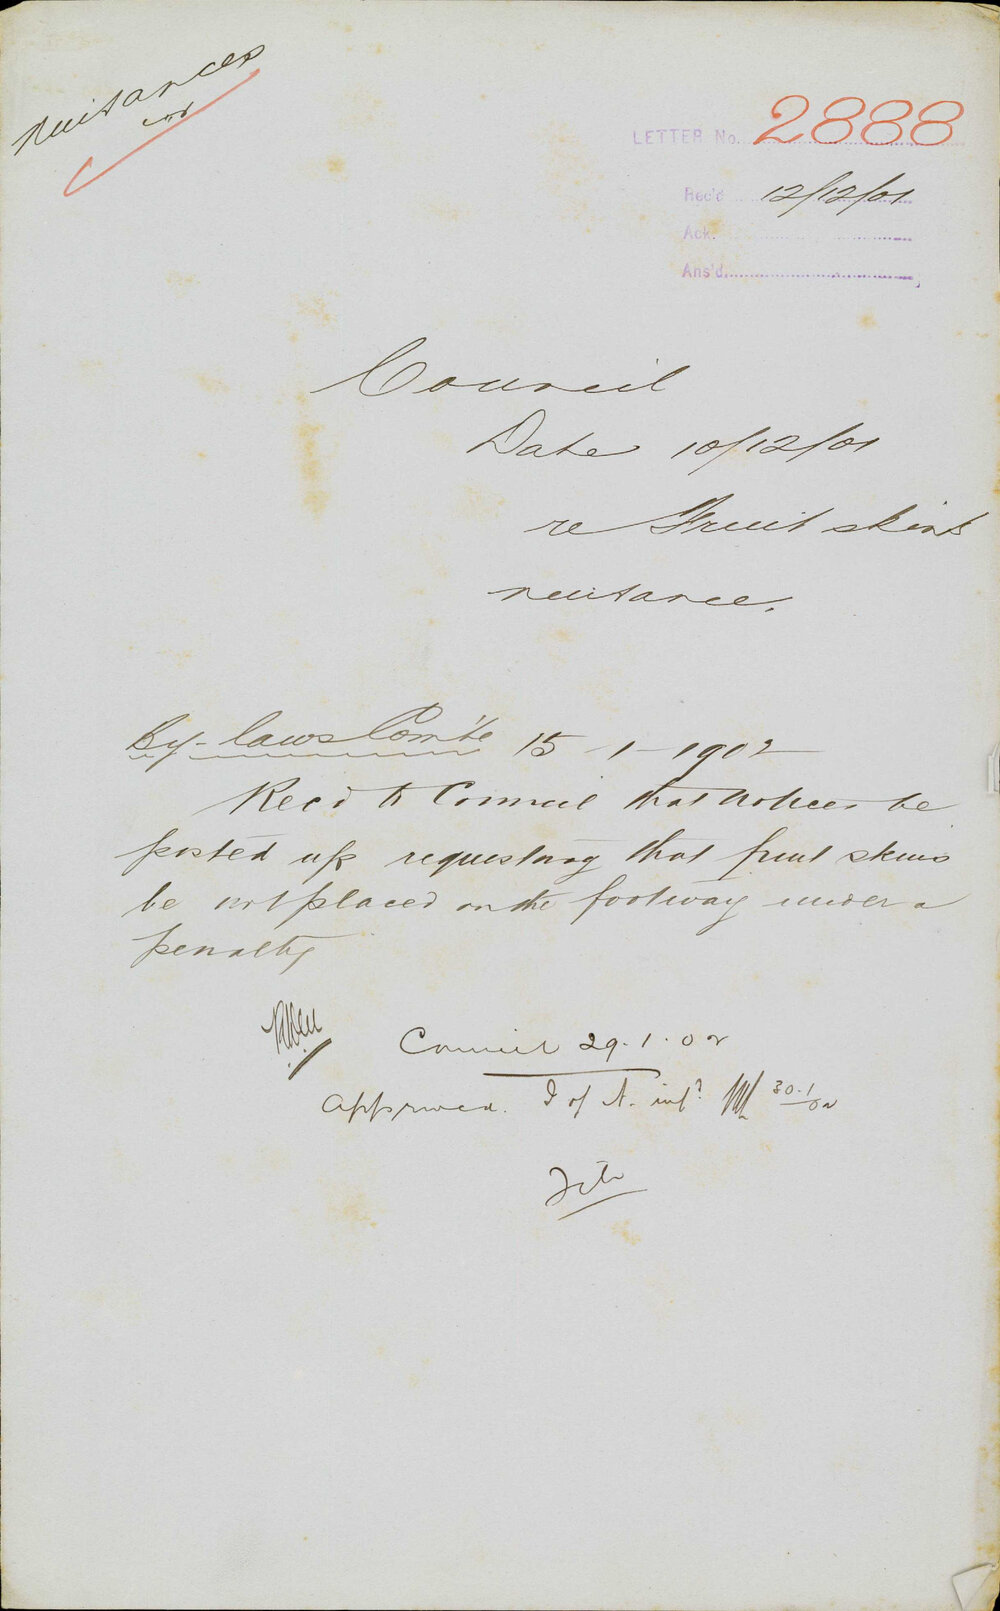 Nuisances
LETTER No. 2888
Rec'd 12/12/01
Ack.
Ans'd
Council
Date 10/12/01
re Fruit skins
nuisance.
By-laws Com'te 15-1-1902
Rec'd to Council that notices be
posted up requesting that fruit skins
be not placed on the footway under a
penalty
Council 29.1.02
Approved. I of N. inf? 30.1/02
File